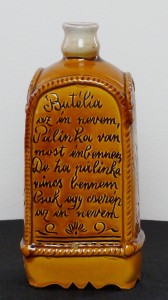 Butélia
az én nevem,
Pálinka van
most énbennem,
De ha pálinka
nincs bennem
Csak egy cserép
az én nevem